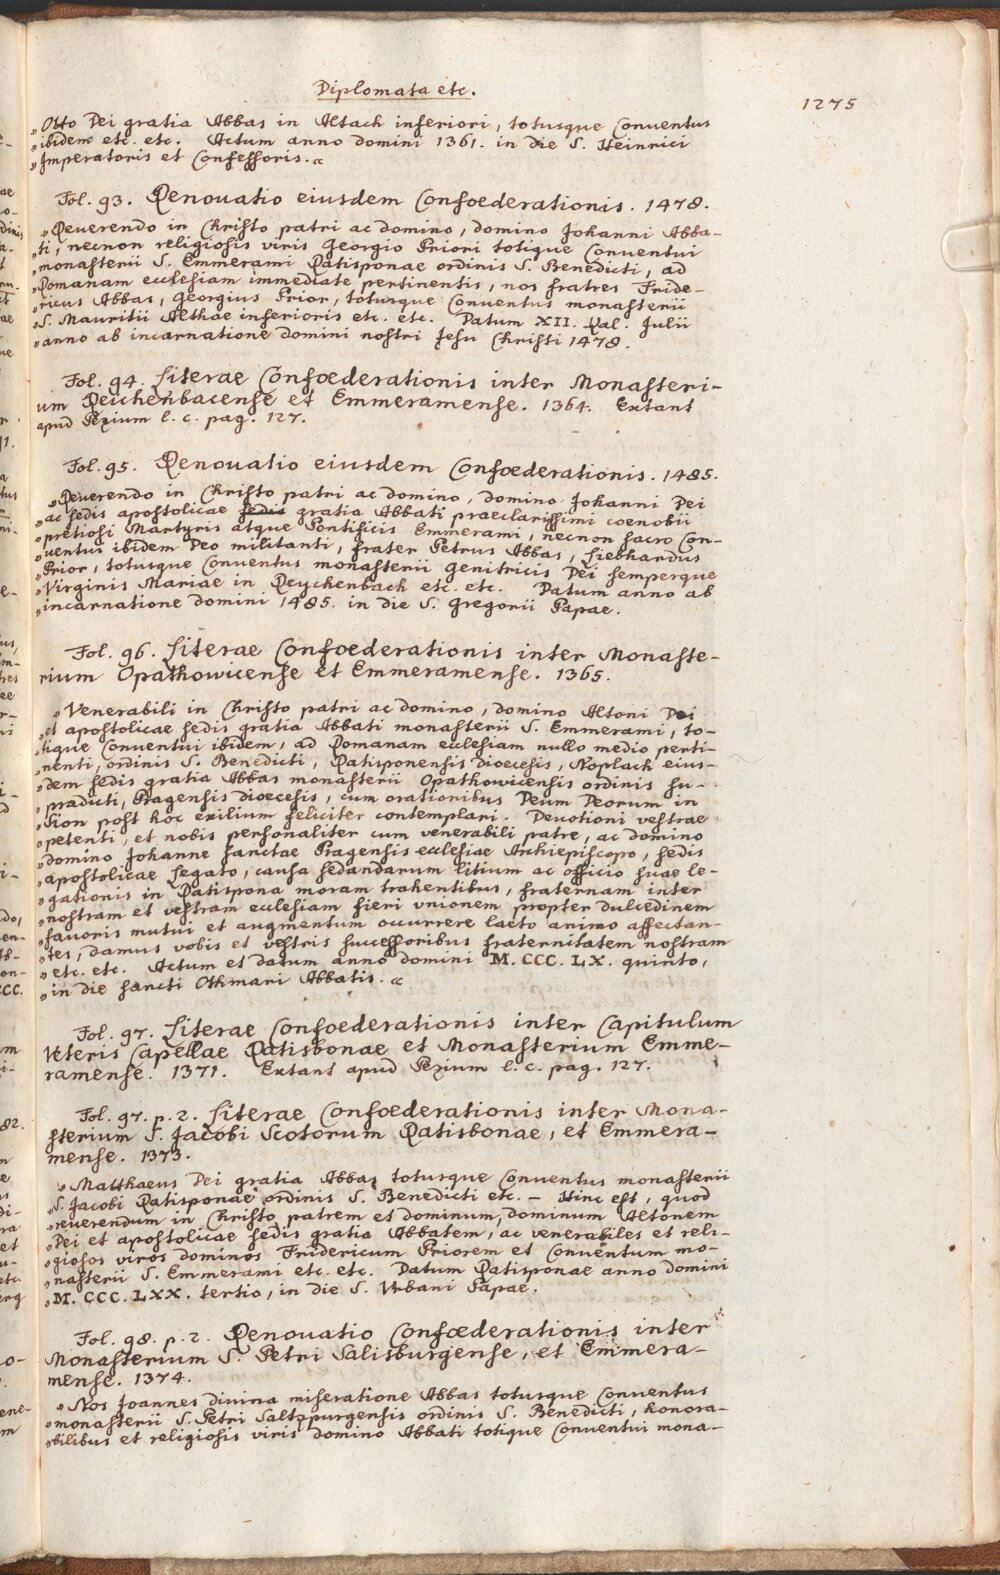 Diplomata etc.
1275
„Otto Dei gratia Abbas in Altach inferiori, totusque Conventus
„ibidem etc. etc. Actum anno domini 1361. in die S. Heinrici
„Imperatoris et Confessoris.“
Fol. 93. Renouatio eiusdem Confoederationis. 1478.
„Reuerendo in Christo patri ac domino, domino Johanni Abba-
„ti, necnon religiosis viris Georgio Priori totique Conuentui
„monasterii S. Emmerami Ratisponae ordinis S. Benedicti, ad
„Romanam ecclesiam immediate pertinentis, nos fratres Fride-
„ricus Abbas, Georgius Prior, totusque Conventus monasterii
„S. Mauritii Althae inferioris etc. etc. Datum XII. Kal. Julii
„anno ab incarnatione domini nostri Jesu Christi 1478.
Fol. 94. Literae Confoederationis inter Monasteri-
um Reichenbacense et Emmeramense. 1364. Extant
apud Pezium l. c. pag. 127.
Fol. 95. Renouatio eiusdem Confoederationis. 1485.
„Reuerendo in Christo patri ac domino, domino Johanni Dei
„ac sedis apostolicae sedis gratia Abbati praeclarissimi coenobii
„pretiosi Martyris atque Pontificis Emmerami, necnon sacro Con-
„uentui ibidem Deo militanti, frater Petrus Abbas, Liebhardus
„Prior, totusque Conventus monasterii genitricis Dei semperque
„Virginis Mariae in Reychenbach etc. etc. Datum anno ab
„incarnatione domini 1485. in die S. Gregorii Papae.
Fol. 96. Literae Confoederationis inter Monaste-
rium Opathowicense et Emmeramense. 1365.
„Venerabili in Christo patri ac domino, domino Altoni Dei
„et apostolicae sedis gratia Abbati monasterii S. Emmerami, to-
„tique Conuentui ibidem, ad Romanam ecclesiam nullo medio perti-
„nenti, ordinis S. Benedicti, Ratisponensis dioecesis, Noplach eius-
„dem sedis gratia Abbas monasterii Opathowicensis ordinis su-
„pradicti, Pragensis dioecesis, cum orationibus Deum Deorum in
„Sion post hoc exilium feliciter contemplari. Deuotioni vestrae
„petenti, et nobis personaliter cum venerabili patre, ac domino
„domino Johanne sanctae Pragensis ecclesiae Archiepiscopo, sedis
„apostolicae Legato, causa sedandarum litium ac officio suae le-
„gationis in Ratispona moram trahentibus, fraternam inter
„nostram et vestram ecclesiam fieri vnionem propter dulcedinem
„fauoris mutui et augmentum occurrere laeto animo affectan-
„tes, damus vobis et vestris successoribus fraternitatem nostram
„etc. etc. Actum et datum anno domini M. CCC. LX. quinto,
„in die sancti Othmari Abbatis.“
Fol. 97. Literae Confoederationis inter Capitulum
Veteris Capellae Ratisbonae et Monasterium Emme-
ramense. 1371. Extant apud Pezium l. c. pag. 127.
Fol. 97. p. 2. Literae Confoederationis inter Mona-
sterium S. Jacobi Scotorum Ratisbonae, et Emmera-
mense. 1373.
„Matthaeus Dei gratia Abbas totusque Conventus monasterii
„S. Jacobi Ratisponae ordinis S. Benedicti etc. – Hinc est, quod
„reuerendum in Christo patrem et dominum, dominum Altonem
„Dei et apostolicae sedis gratia Abbatem, ac venerabiles et reli-
„giosos viros dominos Fridericum Priorem et Conuentum mo-
„nasterii S. Emmerami etc. etc. Datum Ratisponae anno domini
„M. CCC. LXX. tertio, in die S. Vrbani Papae.
Fol. 98. p. 2. Renouatio Confoederationis inter
Monasterium S. Petri Salisburgense, et Emmera-
mense. 1374.
„Nos Joannes diuina miseratione Abbas totusque Conuentus
„monasterii S. Petri Saltzpurgensis ordinis S. Benedicti, honora-
„bilibus et religiosis viris domino Abbati totique Conuentui mona-